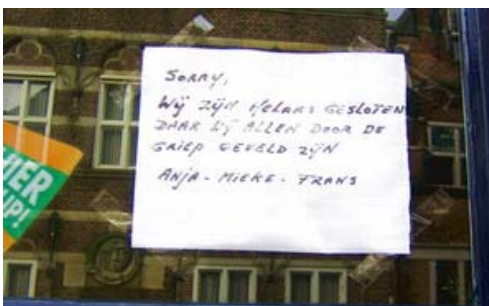 SORRY,
WIJ ZIJN HELAAS GESLOTEN
DAAR WIJ ALLEN DOOR DE
GRIEP GEVELD ZIJN
ANJA - MIEKE - FRANS
HER
UP!